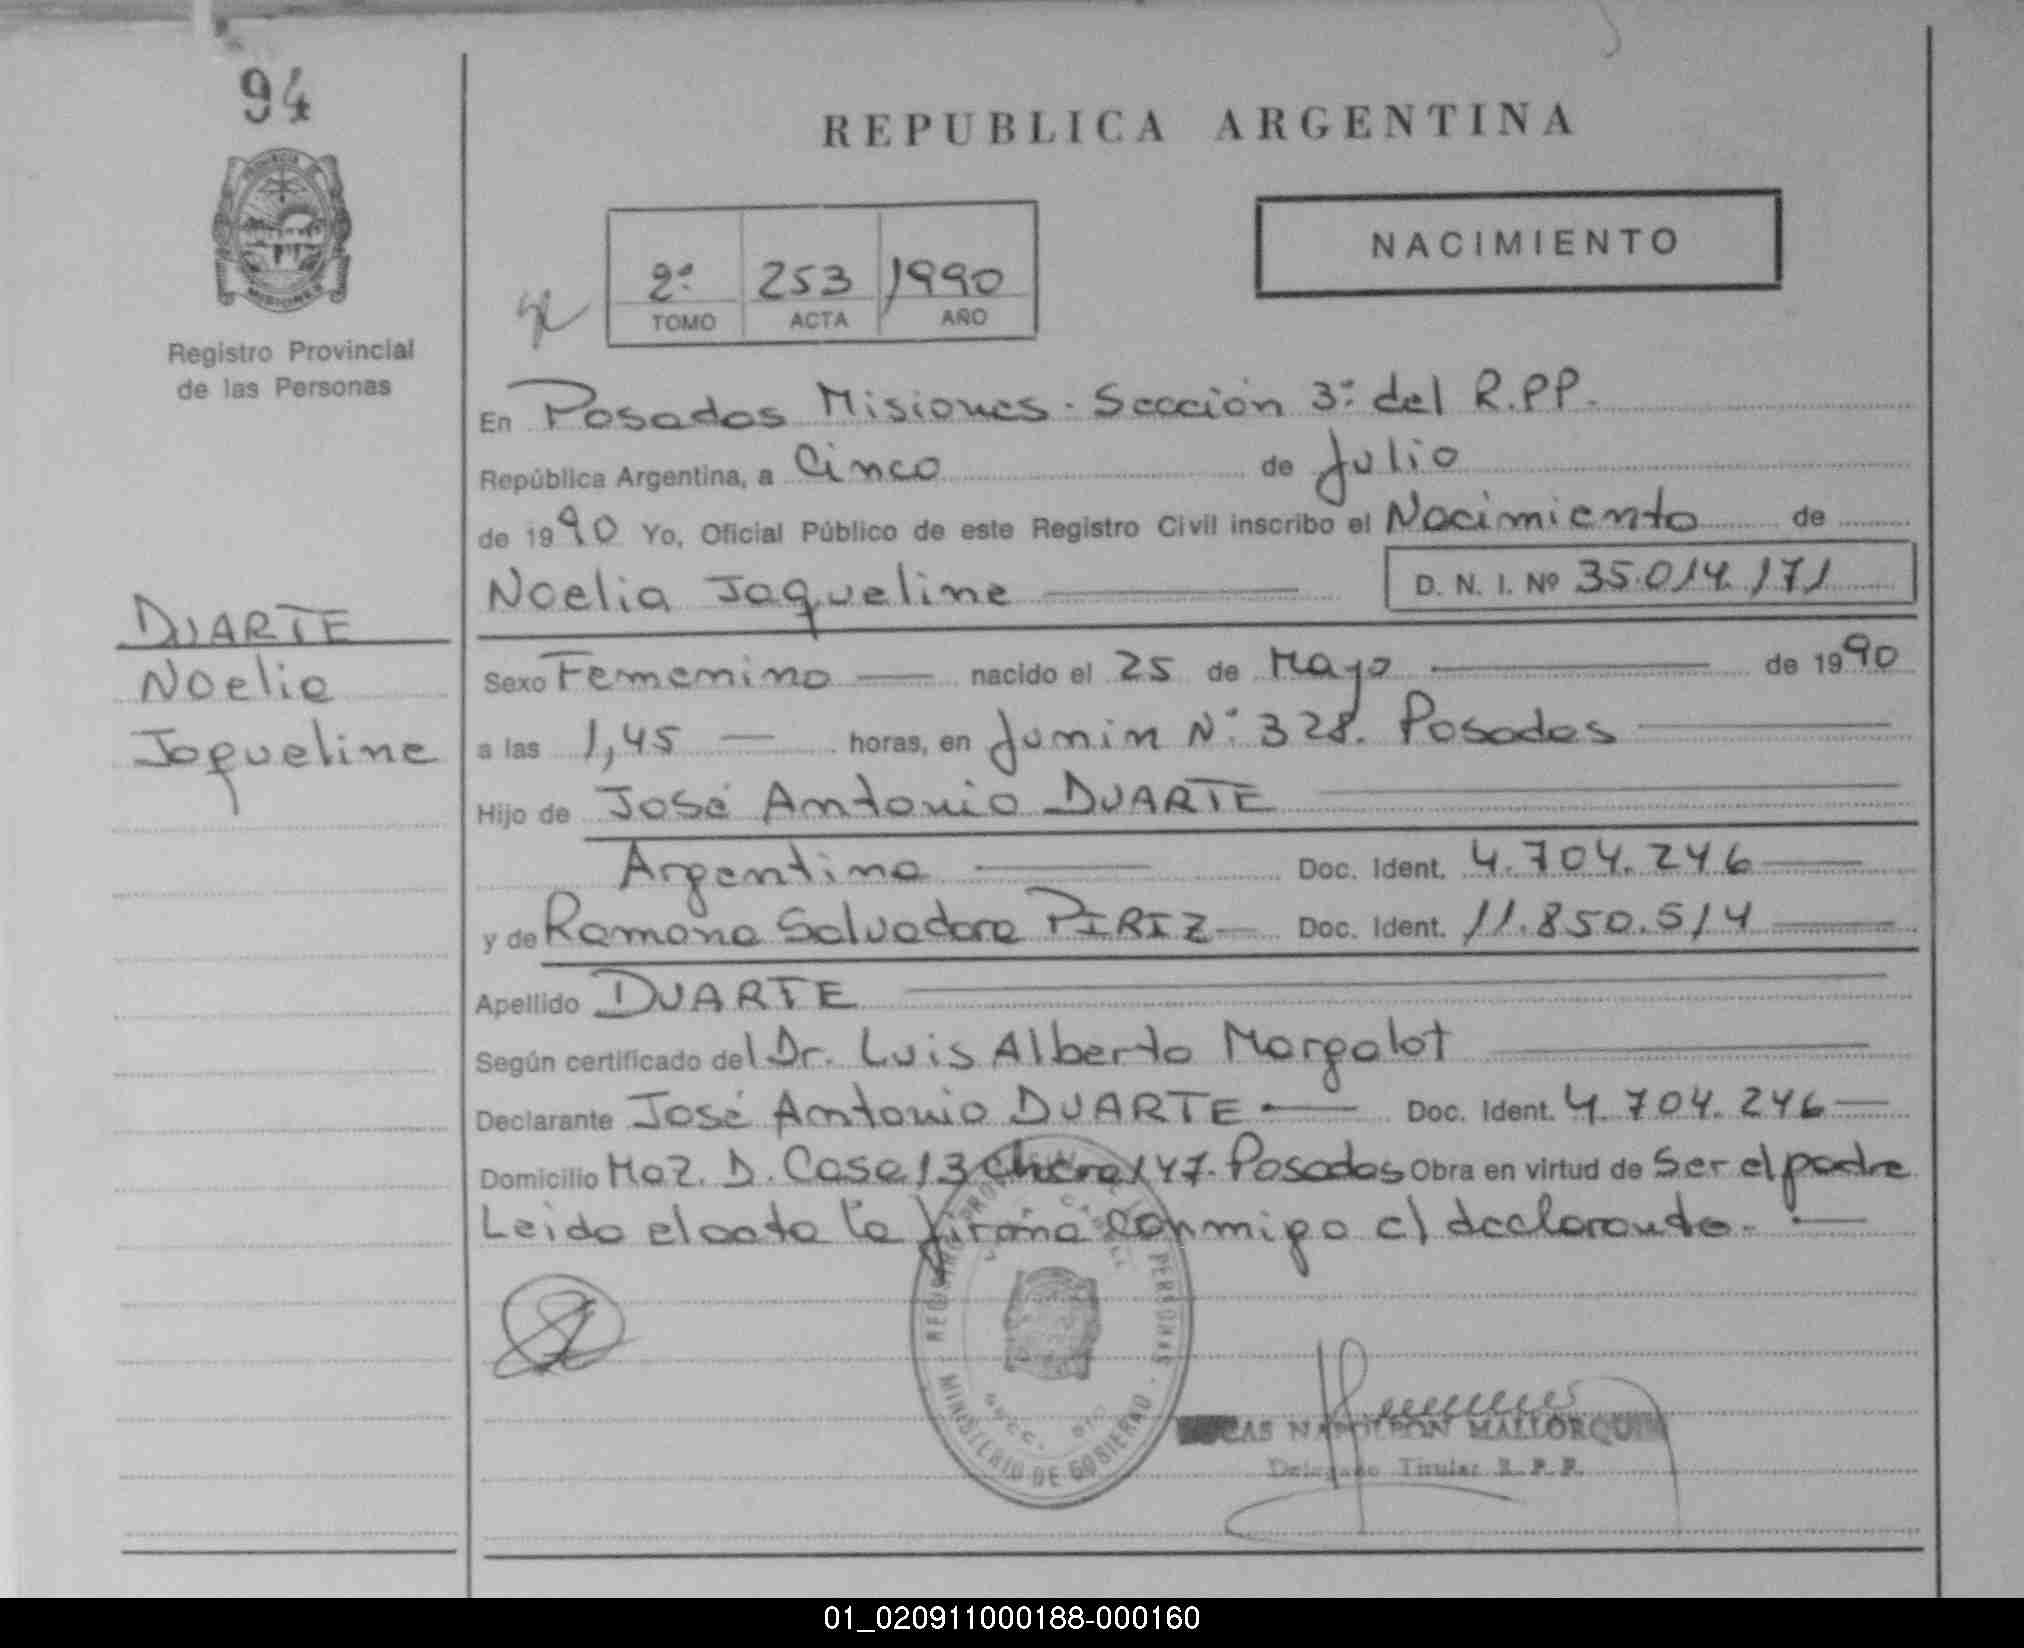 94
REPUBLICA ARGENTINA
NACIMIENTO
2º 253 1990
TOMO ACTA AÑO
MISIONES
Registro Provincial
de las Personas
En Posadas Misiones. Sección 3º del R.P.P.
República Argentina, a Cinco de Julio
de 1990 Yo, Oficial Público de este Registro Civil inscribo el Nacimiento de
Noelia Jaqueline D. N. I. Nº 35.014.171
DUARTE
Noelia
Jaqueline
Sexo Femenino nacido el 25 de Mayo de 1990
a las 1,45 horas, en Junin Nº 328. Posadas
Hijo de José Antonio DUARTE
Argentino Doc. Ident. 4.704.246
y de Ramona Salvadora PIRIZ Doc. Ident. 11.850.514
Apellido DUARTE
Según certificado del Dr. Luis Alberto Margalot
Declarante José Antonio DUARTE Doc. Ident. 4.704.246
Domicilio Maz. D. Casa 13 Chacra 147. Posadas Obra en virtud de Ser el padre
Leido el acta la firma conmigo el declarante.
REGISTRO PERSONAS
MINISTERIO DE GOBIERNO
NAPOLEON MALLORQUIN
Delegado Titular R.P.P.
01_020911000188-000160